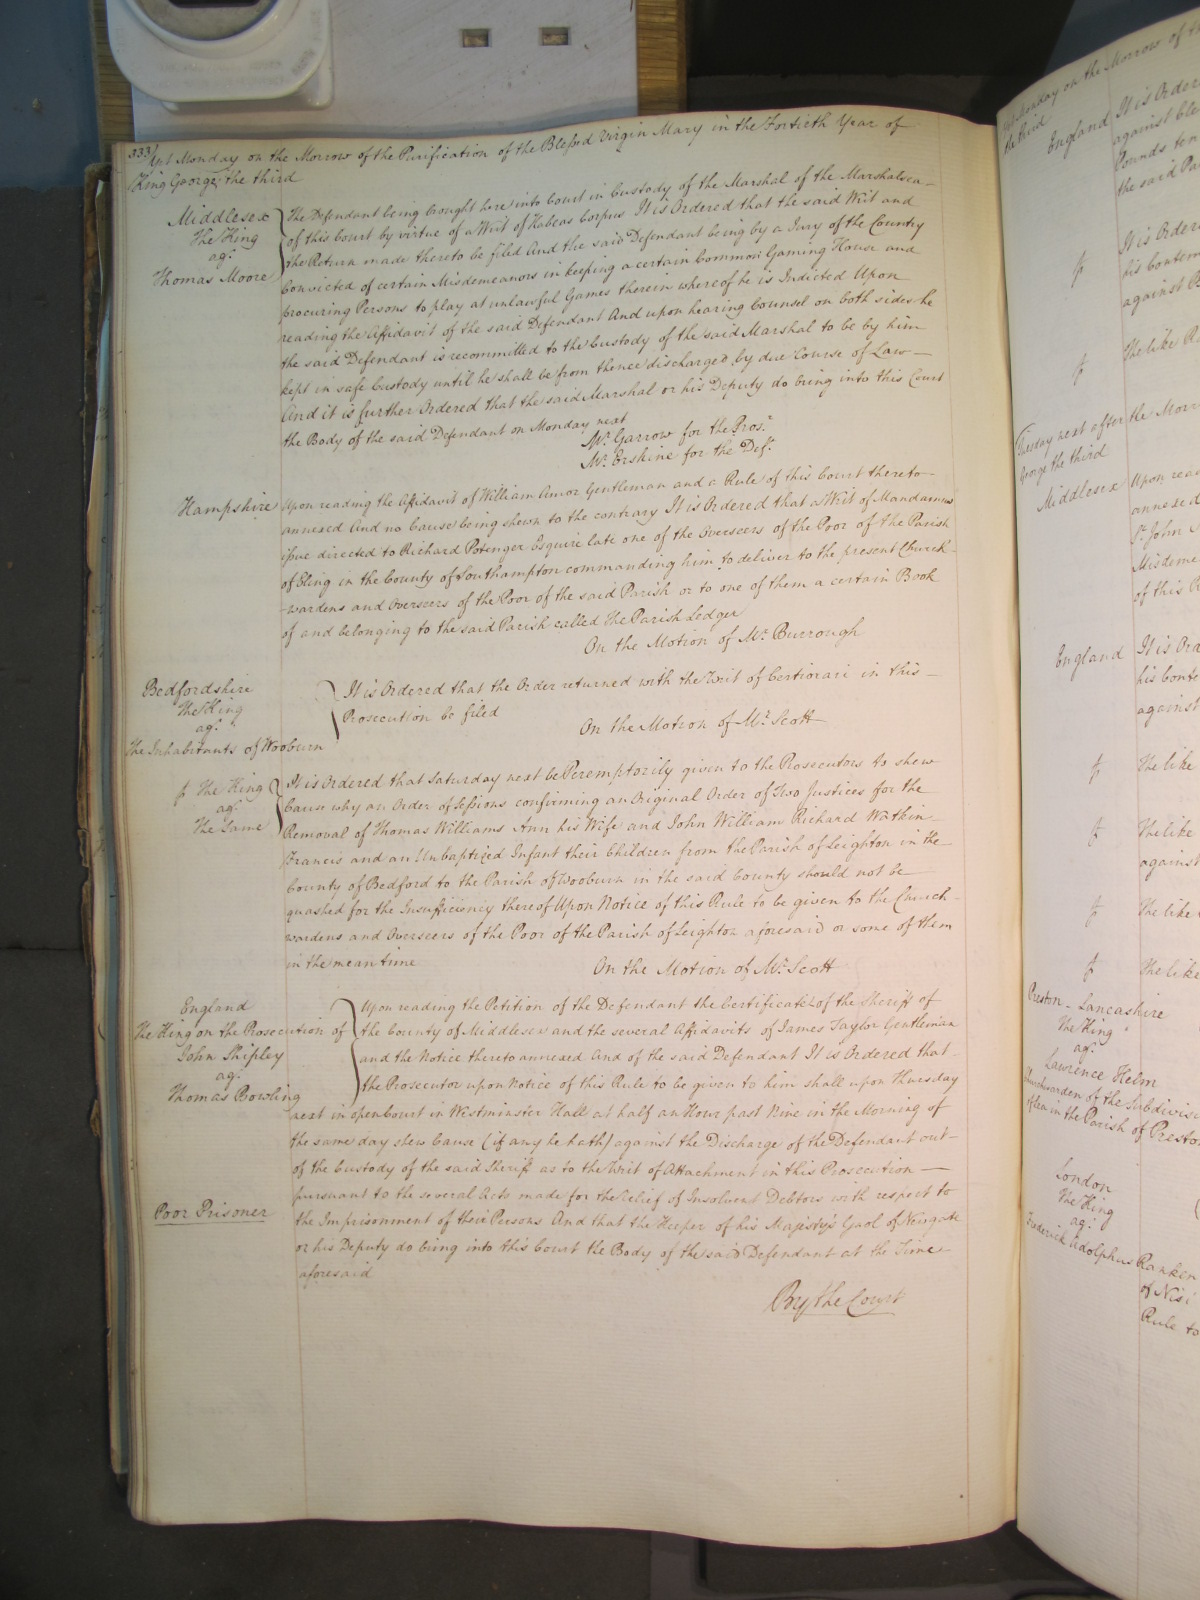 333
Yet Monday on the Morrow of the Purification of the Blessed Virgin Mary in the Fortieth Year of
King George the third
Middlesex
The King
agt
Thomas Moore
The Defendant being brought here into Court in Custody of the Marshal of the Marshalsea
of this Court by virtue of a Writ of Habeas Corpus It is Ordered that the said Writ and
the Return made thereto be filed And the said Defendant being by a Jury of the Country
Convicted of certain Misdemeanors in keeping a certain Common Gaming House and
procuring Persons to play at unlawful Games therein whereof he is Indicted Upon
reading the Affidavit of the said Defendant And upon hearing Counsel on both sides he
the said Defendant is recommitted to the Custody of the said Marshal to be by him
kept in safe Custody until he shall be from thence discharged by due Course of Law
And it is further Ordered that the said Marshal or his Deputy do bring into this Court
the Body of the said Defendant on Monday next
Mr. Garrow for the Prosr
Mr. Erskine for the Deft
Hampshire
Upon reading the Affidavit of William Amor Gentleman and a Rule of this Court thereto
annexed And no Cause being shewn to the contrary It is Ordered that a Writ of Mandamus
issue directed to Richard Potenger Esquire late one of the Overseers of the Poor of the Parish
of Eling in the County of Southampton commanding him to deliver to the present Church-
-wardens and Overseers of the Poor of the said Parish or to one of them a certain Book
of and belonging to the said Parish called The Parish Ledger
On the Motion of Mr. Burrough
Bedfordshire
The King
agt
The Inhabitants of Wooburn
It is Ordered that the Order returned with the Writ of Certiorari in this
Prosecution be filed
On the Motion of Mr. Scott
The King
agt
The Same
It is Ordered that Saturday next be Peremptorily given to the Prosecutors to shew
Cause why an Order of Sessions confirming an Original Order of Two Justices for the
Removal of Thomas Williams Ann his Wife and John William Richard Watkin
Francis and an Unbaptized Infant their Children from the Parish of Leighton in the
County of Bedford to the Parish of Wooburn in the said County should not be
quashed for the Insufficiency thereof Upon Notice of this Rule to be given to the Church-
wardens and Overseers of the Poor of the Parish of Leighton aforesaid or some of them
in the mean time
On the Motion of Mr. Scott
England
The King on the Prosecution of
John Shipley
agt
Thomas Bowling
Upon reading the Petition of the Defendant the Certificate of the Sheriff of
the County of Middlesex and the several Affidavits of James Taylor Gentleman
and the Notice thereto annexed And of the said Defendant It is Ordered that
the Prosecutor upon Notice of this Rule to be given to him shall upon Thursday
next in open Court in Westminster Hall at half an Hour past Nine in the Morning of
the same day shew Cause (if any he hath) against the Discharge of the Defendant out
of the Custody of the said Sheriff as to the Writ of Attachment in this Prosecution
pursuant to the several Acts made for the relief of Insolvent Debtors with respect to
Poor Prisoner
the Imprisonment of their Persons And that the Keeper of his Majesty's Gaol of Newgate
or his Deputy do bring into this Court the Body of the said Defendant at the Time
aforesaid
By the Court
Monday on the Morrow of
the third
England
It is Order
against
Pounds
the said
It is Order
his Contem
against
The like
Tuesday next after the Morr
George the third
Middlesex
Upon read
annexed
St. John
Misdeme
of this
England
It is Ord
his Conte
against
The like
The like
against
The like
The like
Preston - Lancashire
The King
agt
Lawrence Helm
Churchwarden of the Subdivis
in the Parish of Presto
London
The King
agt
Frederick Adolphus Ranken
of Nisi
Rule to